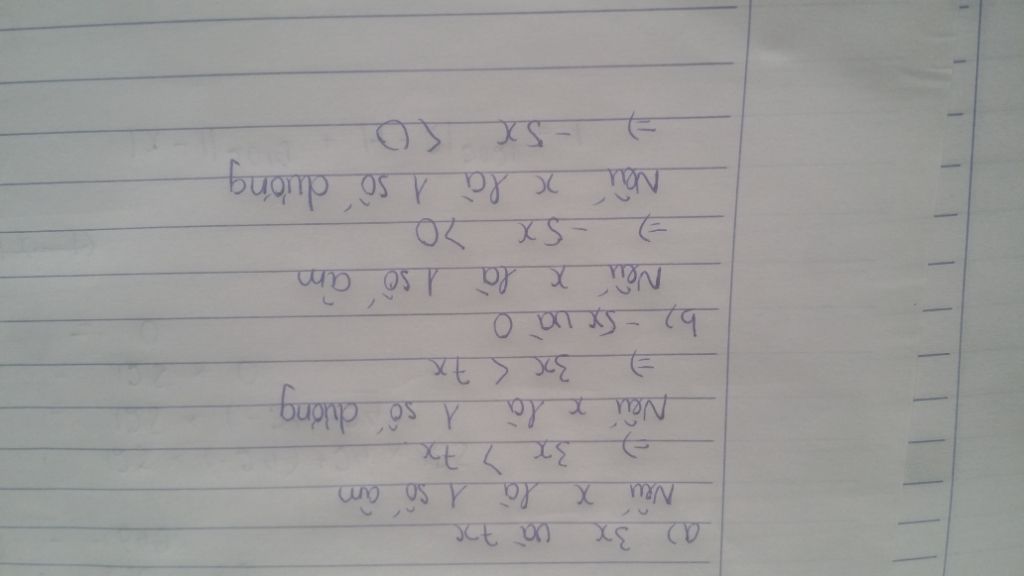 a) 3x và 7x
Nếu x là 1 số âm
=> 3x > 7x
Nếu x là 1 số dương
=> 3x < 7x
b) -5x và 0
Nếu x là 1 số âm
=> -5x >0
Nếu x là 1 số dương
=> -5x <0